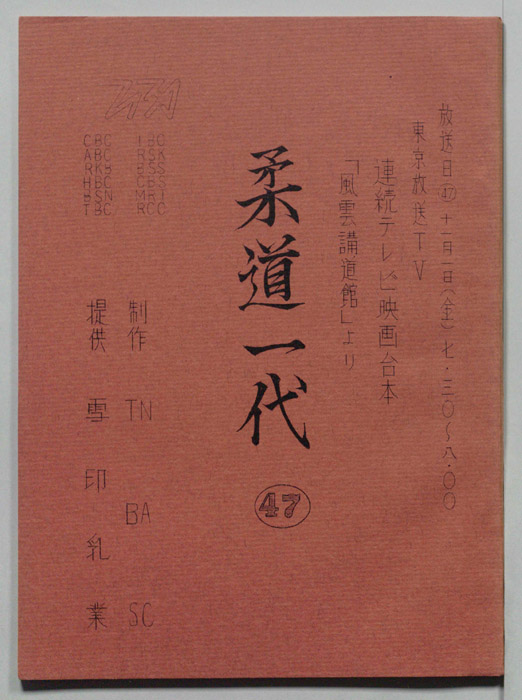 放送日㊼十一月一日(金)七・三〇〜八・〇〇
東京放送TV
連続テレビ映画台本
「風雲講道館」より
柔道一代
47
制作 TN BA SC
提供 雪印乳業
CBC IBC
ABC RSK
RKB BSS
HBC CBS
BSN MRT
TBC RCC